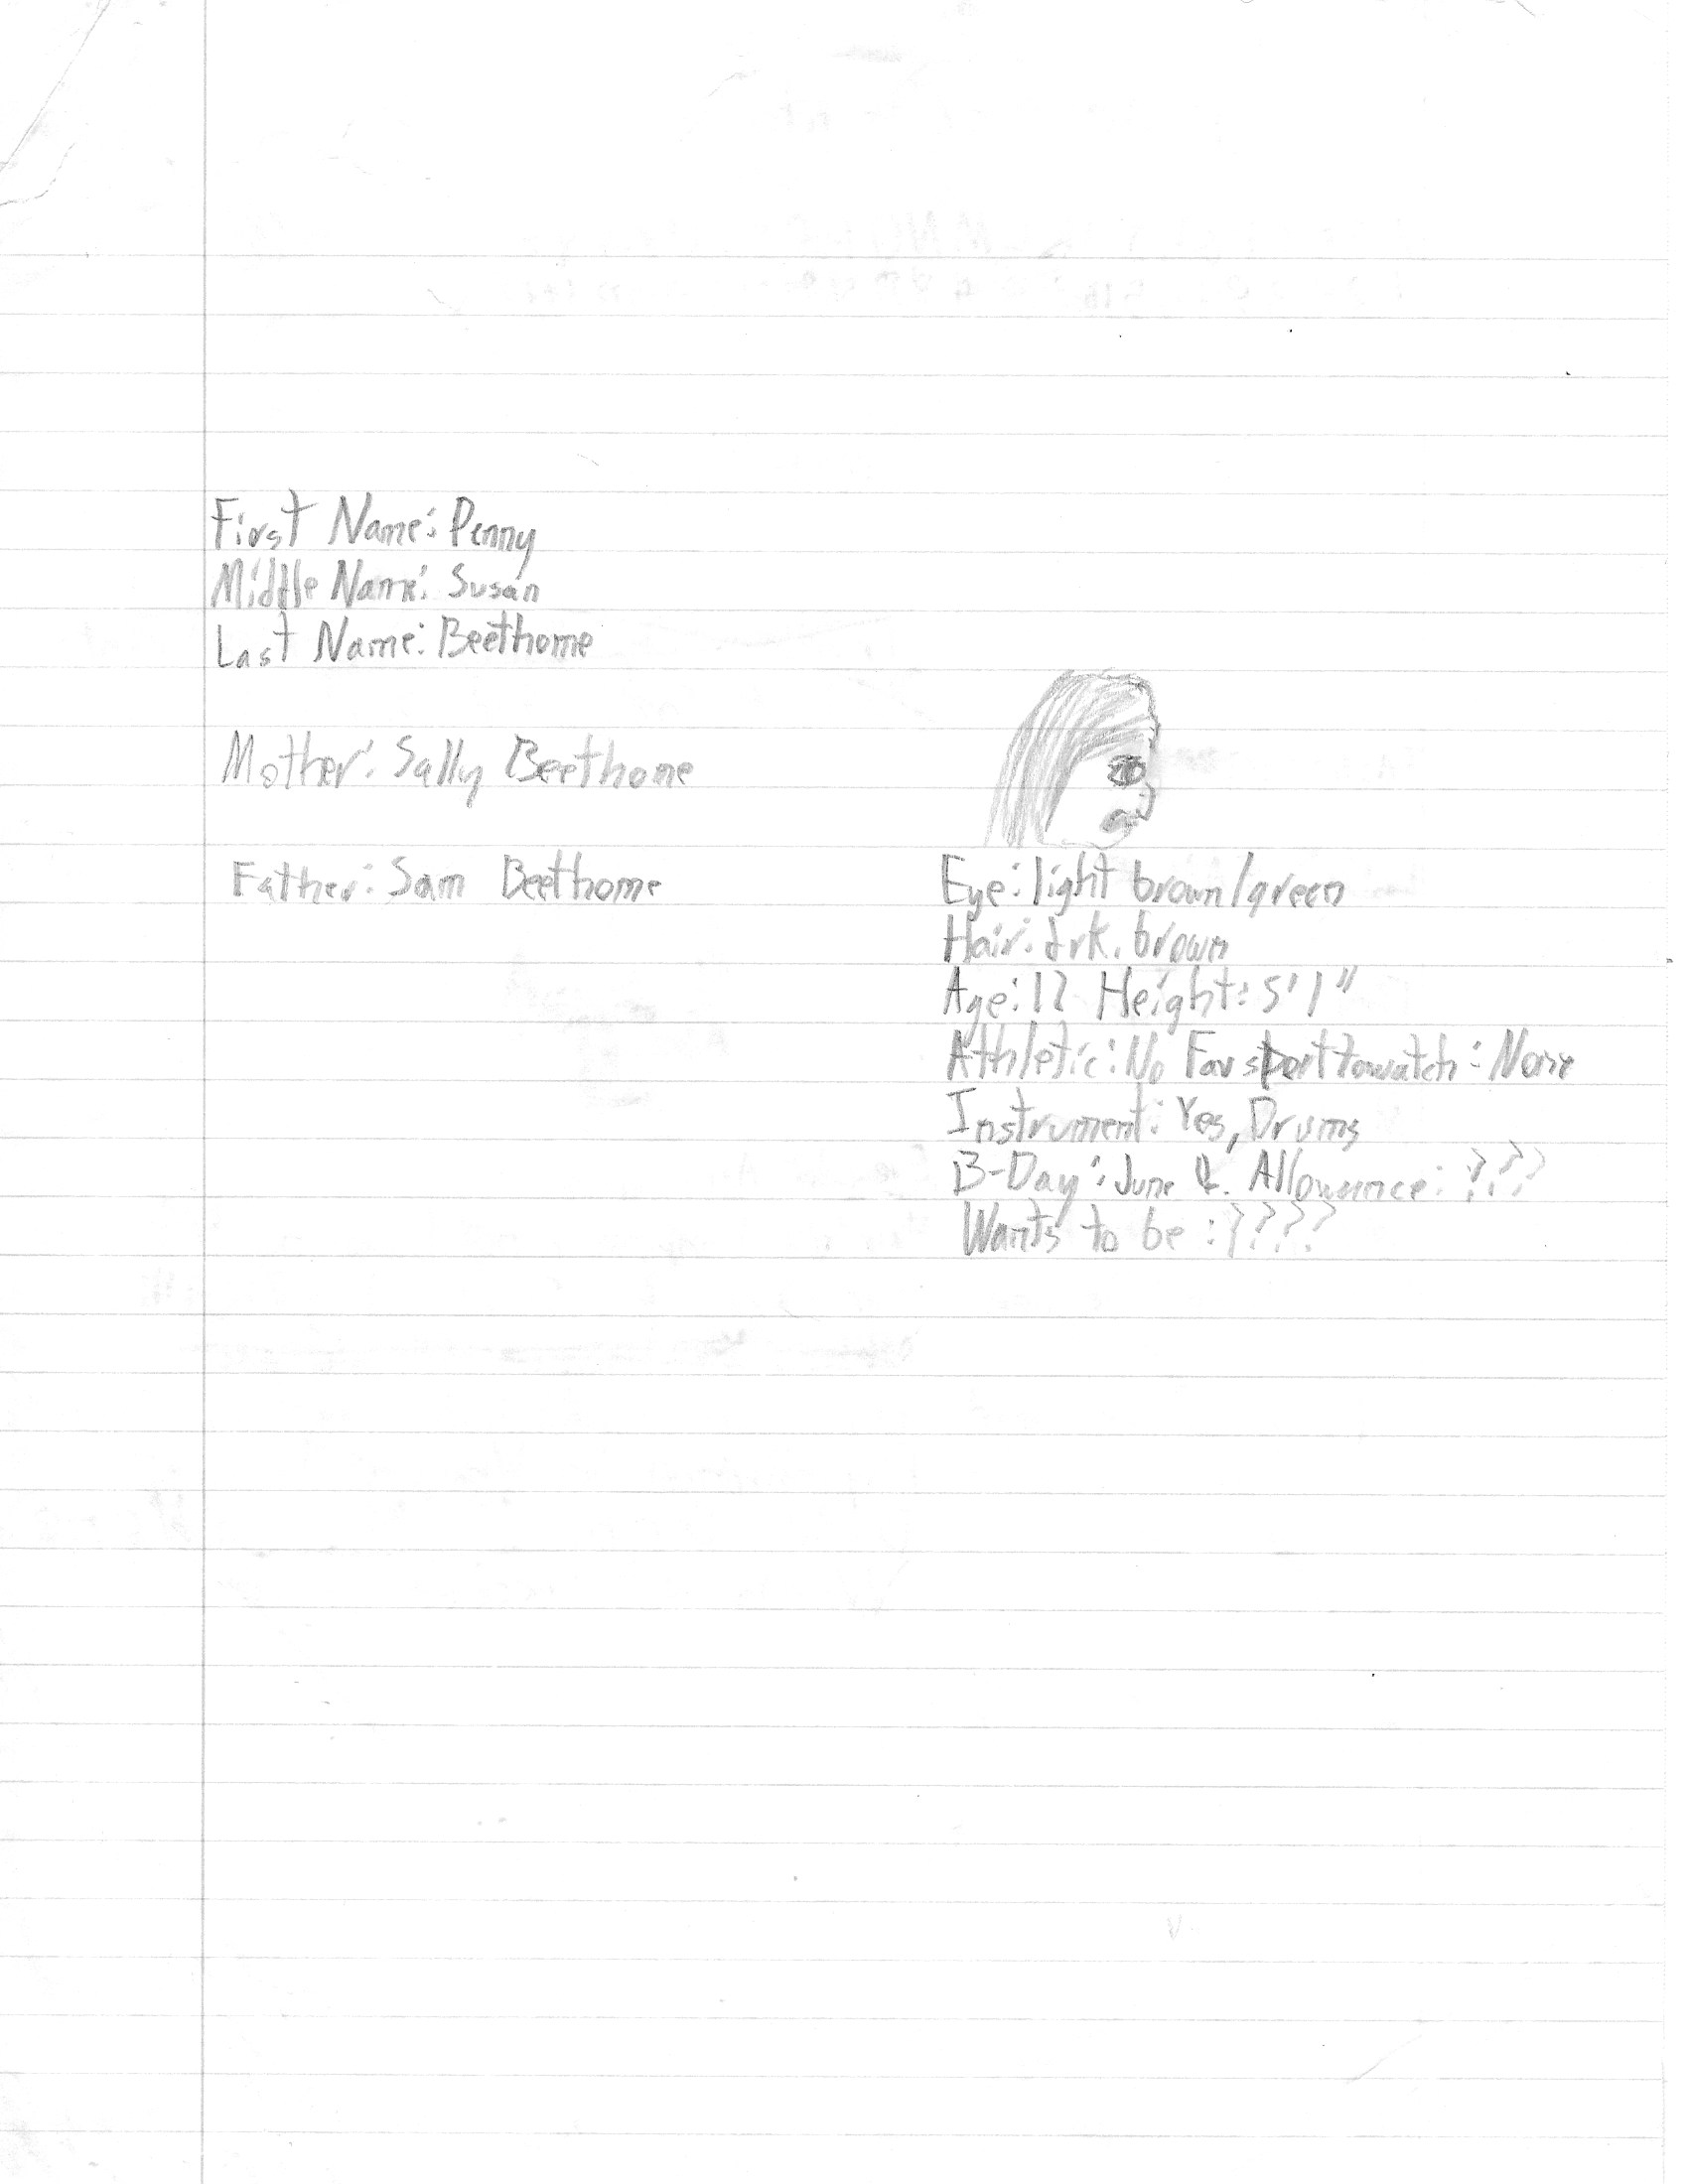 First Name: Penny
Middle Name: Susan
Last Name: Beethome
Mother: Sally Beethome
Father: Sam Beethome
Eye: light brown/green
Hair: drk. brown
Age: 12 Height: 5'1"
Athletic: No Fav sport to watch: None
Instrument: Yes, Drums
B-Day: June 4. Allowence: ???
Wants to be: ????